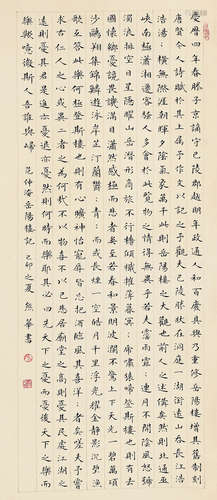 慶曆四年春滕子京謫守巴陵郡越明年政通人和百廢具興乃重修岳陽樓增其舊制刻
唐賢今人詩賦於其上屬予作文以記之予觀夫巴陵勝狀在洞庭一湖銜遠山吞長江浩
浩湯：橫無際涯朝暉夕陰氣象萬千此則岳陽樓之大觀也前人之述備矣然則北通巫
峽南極瀟湘遷客騷人多會於此覽物之情得無異乎若夫霪雨霏：連月不開陰風怒號
濁浪排空日星隱曜山岳潛形商旅不行檣傾楫摧薄暮冥：虎嘯猿啼登斯樓也則有去
國懷鄉憂讒畏譏滿目蕭然感極而悲者矣至若春和景明波瀾不驚上下天光一碧萬頃
沙鷗翔集錦鱗游泳岸芷汀蘭鬱：青：而或長煙一空皓月千里浮光耀金靜影沉璧漁
歌互答此樂何極登斯樓也則有心曠神怡寵辱皆忘把酒臨風其喜洋：者矣嗟夫予嘗
求古仁人之心或異二者之為何哉不以物喜不以己悲居廟堂之高則憂其民處江湖之
遠則憂其君是進亦憂退亦憂然則何時而樂耶其必曰先天下之憂而憂後天下之樂而
樂歟噫微斯人吾誰與歸 范仲淹岳陽樓記 己卯之夏 熊華書